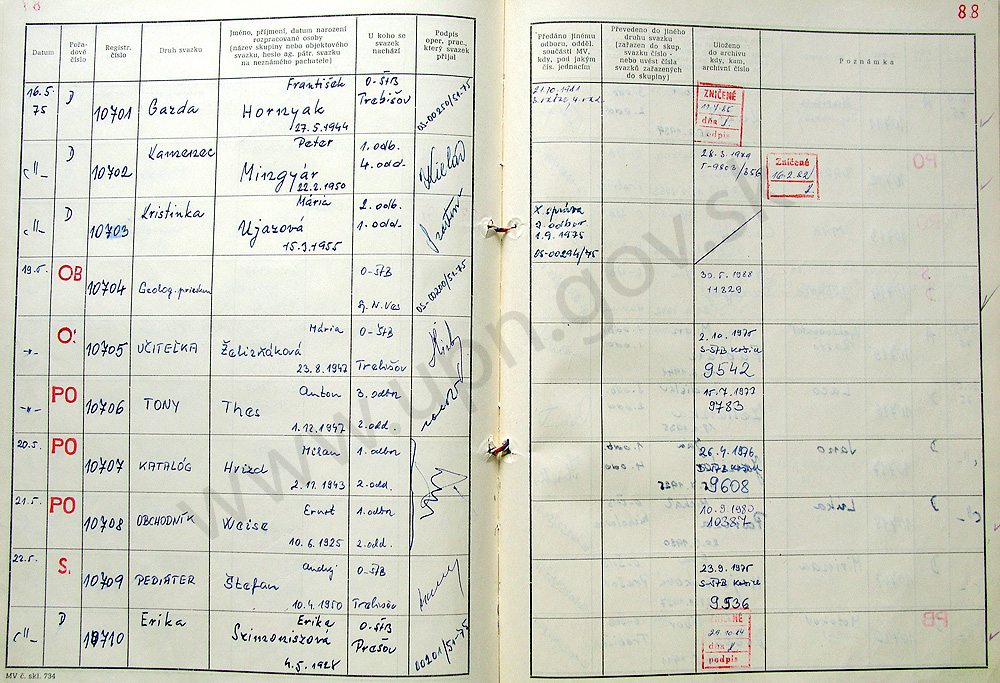 88
Datum
Pořadové číslo
Registr. číslo
Druh svazku
Jméno, příjmení, datum narození rozpracované osoby (název skupiny nebo objektového svazku, heslo ag. pátr. svazku na neznámého pachatele)
U koho se svazek nachází
Podpis oper. prac., který svazek přijal
Předáno jinému odboru, odděl. součásti MV, kdy, pod jakým čís. jednacím
Převedeno do jiného druhu svazku (zařazen do skup. svazku číslo - nebo uvést čísla svazků zařazených do skupiny)
Uloženo do archivu kdy, kam, archivní číslo
Poznámka
16.5. 75 D 10701 Gazda František Hornyak 27.5.1944 O-ŠtB Trebišov OS-00250/51-75
21.10.1981
ZNIČENÉ
dňa
podpis
-"- D 10702 Kamenec Peter Mingyár 22.2.1950 1. odb. 4. odd.
28.3.1979
Zničené
16.2.82
-"- D 10703 Kristinka Mária Ujazová 15.3.1955 2. odb. 1. odd.
X. správa
2. odbor
1.9.1975
OS-00294/75
19.5. OB 10704 Geolog. prieskum O-ŠtB Sp. N. Ves OS-00200/51-75
30.5.1988
11829
-"- 10705 UČITEĽKA Mária 23.8.1947 O-ŠtB Trebišov
2.10.1975
S-ŠtB Košice
9542
-"- PO 10706 TONY Anton Thes 1.12.1947 3. odbor 2. odd.
9783
20.5. PO 10707 KATALÓG Milan Hvizd 2.11.1943 1. odbor 2. odd.
26.4.1976
9608
21.5. PO 10708 OBCHODNÍK Ernst Weise 10.6.1925 1. odbor 2. odd.
10.9.1980
10387
22.5. S. 10709 PEDIÁTER Andrej Štefan 10.4.1950 O-ŠtB Trebišov
23.9.1975
S-ŠtB Košice
9536
-"- D 10710 Erika Erika Szimoniszová 4.5.1928 O-ŠtB Prešov 00201/51-75
ZNIČENÉ
dňa
podpis
MV č. skl. 734
www.upn.gov.sk